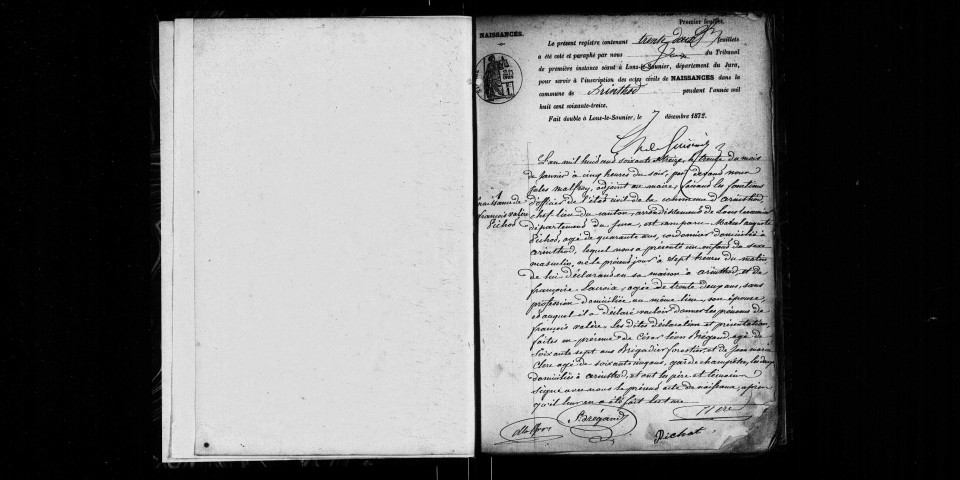 Premier feuillet.
NAISSANCES.
Le présent registre contenant trente deux feuillets
a été coté et paraphé par nous Juge du Tribunal
de première instance séant à Lons-le-Saunier, département du Jura,
pour servir à l'inscription des actes civils de NAISSANCES dans la
commune de Arinthod pendant l'année mil
huit cent soixante-treize.
Fait double à Lons-le-Saunier, le 7 décembre 1872.
L'an mil huit cent soixante treize, le trente du mois
de janvier à cinq heures du soir, par devant nous
jules malfroy, adjoint au maire, faisant les fonctions
d'officier de l'état civil de la commune d'arinthod,
chef lieu de canton, arrondissement de Lons le saunier
département du Jura, est comparu
Pichod, agé de quarante ans, cordonnier domicilié à
arinthod, lequel nous a présenté un enfant du sexe
masculin, né le présent jour à sept heures du matin
de lui déclarant en sa maison à arinthod, et de
françoise Lacroix, agée de trente deux ans, sans
profession domiciliée au même lieu, son épouse,
et auquel il a déclaré vouloir donner les prénoms de
françois valère. Les dites déclaration et présentation
faites en présence de César Léon Brégand, agé de
soixante sept ans Brigadier forestier, et de jean marie
Clere agé de soixante ans, garde champêtre, les deux
domiciliés à arinthod, et ont les père et témoins
signé avec nous le présent acte de naissance, après
qu'il leur en a été fait lecture
1
naissance de
françois valère
Pichod
Brégand
Clere
Pichat